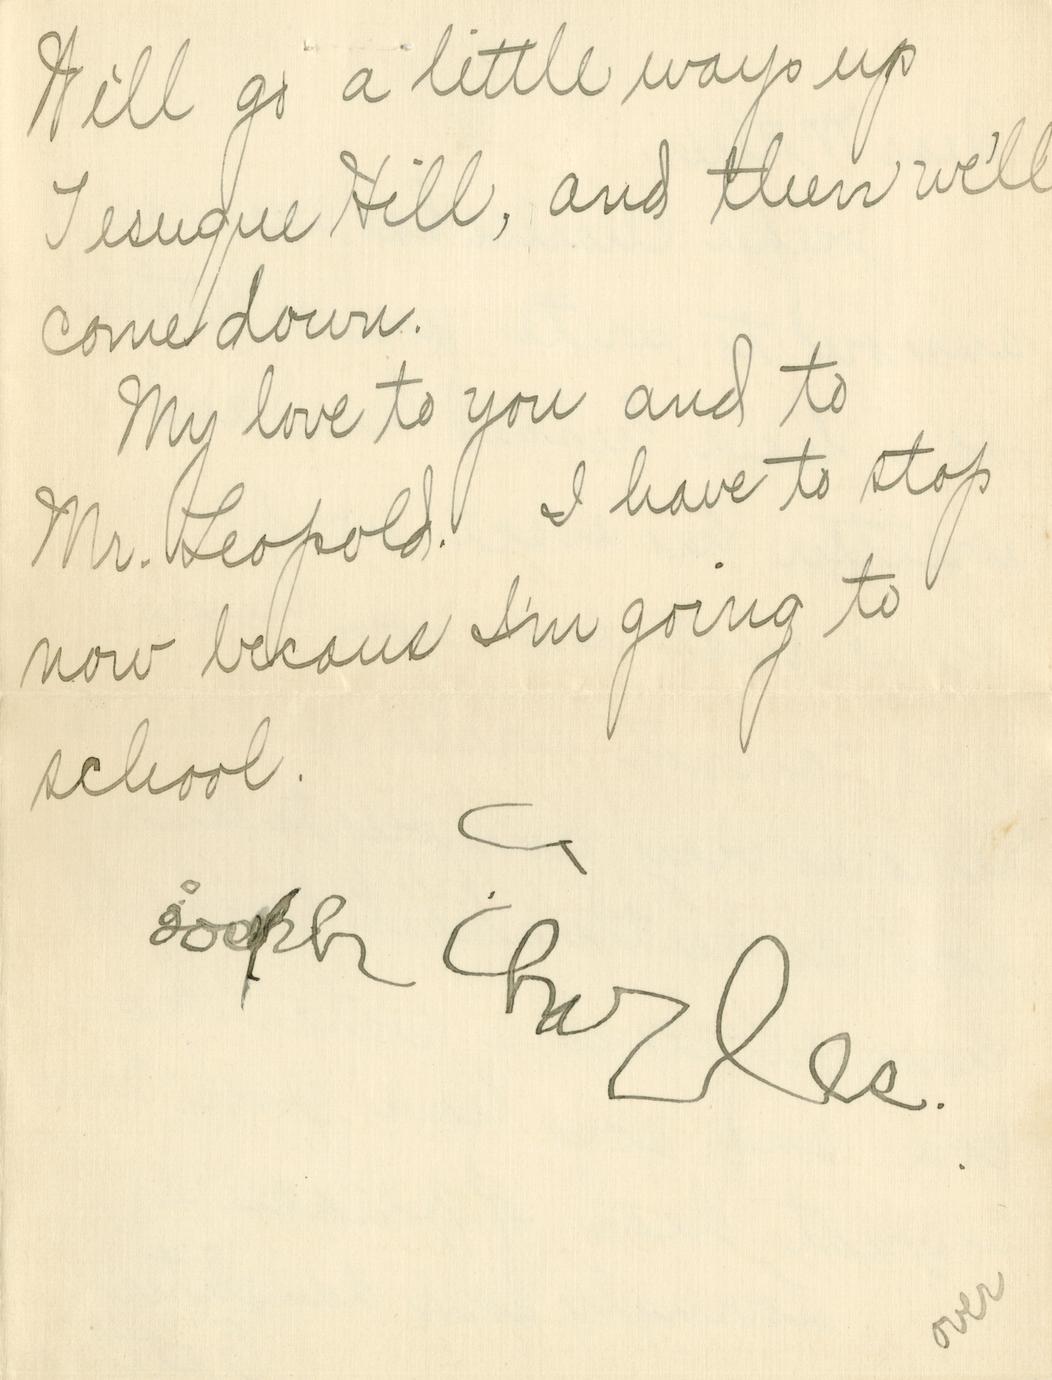 Will go a little ways up
Tesuque Hill, and then we'll
come down.
My love to you and to
Mr. Leopold. I have to stop
now because I'm going to
school.
C
Charles.
over